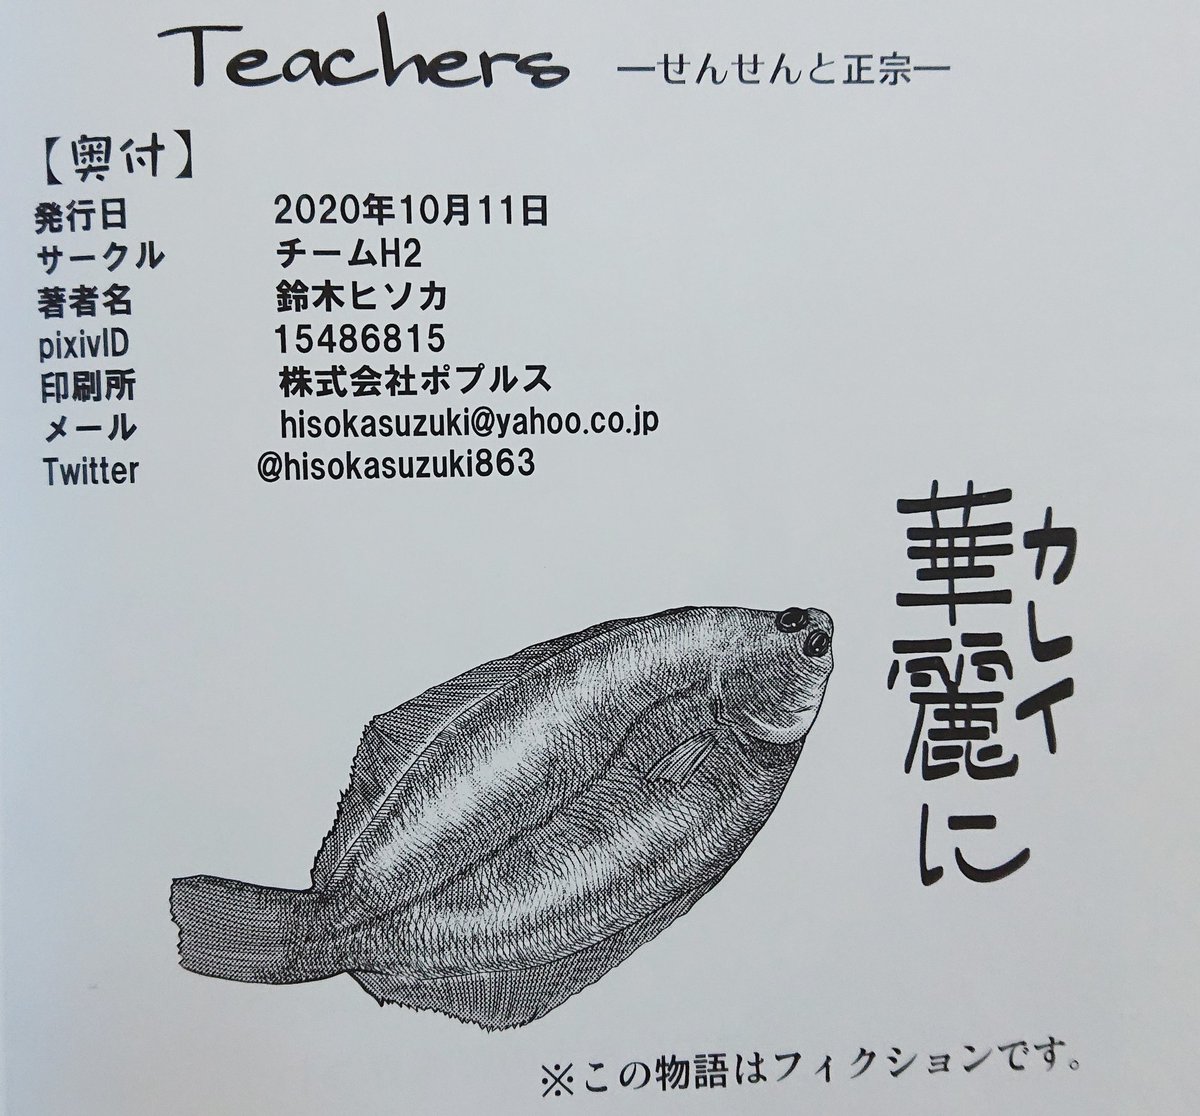 Teachers ―せんせんと正宗―
【奥付】
発行日 2020年10月11日
サークル チームH2
著者名 鈴木ヒソカ
pixivID 15486815
印刷所 株式会社ポプルス
メール hisokasuzuki@yahoo.co.jp
Twitter @hisokasuzuki863
カレイ
華麗に
※この物語はフィクションです。